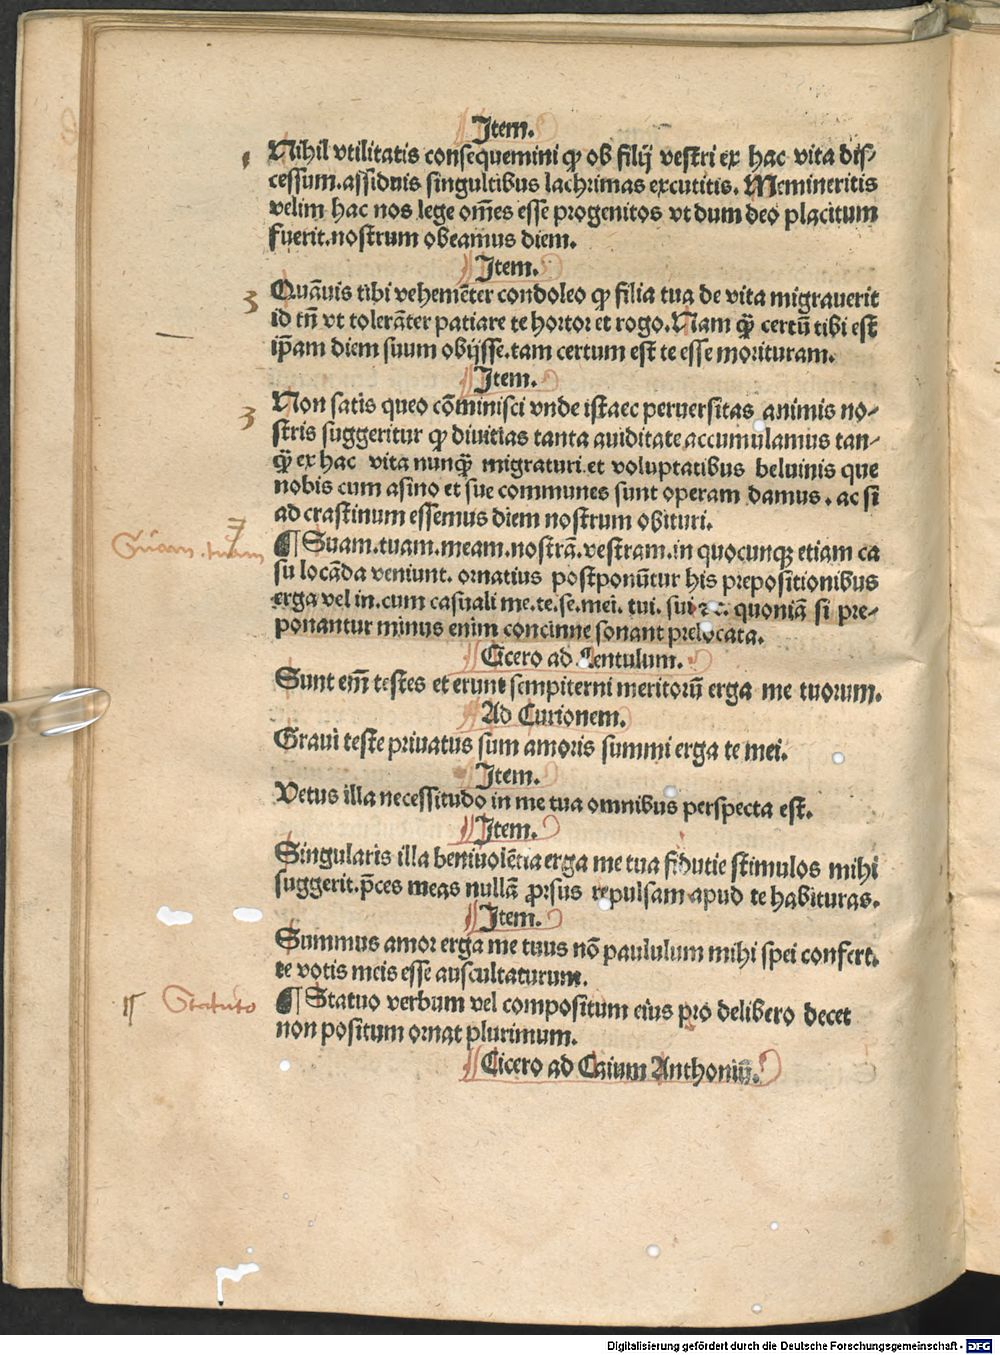 Item.
Nihil vtilitatis consequemini ꝙ ob filij vestri ex hac vita dis⸗
cessum.assiduis singultibus lachrimas excutitis. Memineritis
velim hac nos lege om̄es esse progenitos vt dum deo placitum
fuerit.nostrum obeamus diem.
Item.
3 Quāuis tibi vehemēter condoleo ꝙ filia tua de vita migrauerit
id tn̄ vt tolerāter patiare te hortor et rogo.Nam qm̄ certū tibi est
ip̄am diem suum obijsse.tam certum est te esse morituram.
Item.
3 Non satis queo cōminisci vnde istaec peruersitas animis no⸗
stris suggeritur ꝙ diuitias tanta auiditate accumulamus tan⸗
ꝙ̄ ex hac vita nunꝙ̄ migraturi.et voluptatibus beluinis que
nobis cum asino et sue communes sunt operam damus. ac si
ad crastinum essemus diem nostrum obituri.
Suam.tuam
¶ Suam.tuam.meam.nostrā.vestram.in quocunqꝫ etiam ca
su locāda veniunt. ornatius postponūtur his prepositionibus
erga vel in.cum casuali me.te.se.mei. tui. sui ⁊c. quoniā si pre⸗
ponantur minus enim concinne sonant prelocata.
Cicero ad Lentulum.
Sunt em̄ testes et erunt sempiterni meritorū erga me tuorum.
Ad Curionem.
Graui teste priuatus sum amoris summi erga te mei.
Item.
Vetus illa necessitudo in me tua omnibus perspecta est.
Item.
Singularis illa beniuolētia erga me tua fidutie stimulos mihi
suggerit.p̄ces meas nullā ꝓrsus repulsam apud te habituras.
Item.
Summus amor erga me tuus nō paululum mihi spei confert.
te votis meis esse auscultaturum.
Statuto
¶ Statuo verbum vel compositum eius pro delibero decet
non positum ornat plurimum.
Cicero ad Caium Anthoniū.
Digitalisierung gefördert durch die Deutsche Forschungsgemeinschaft - DFG